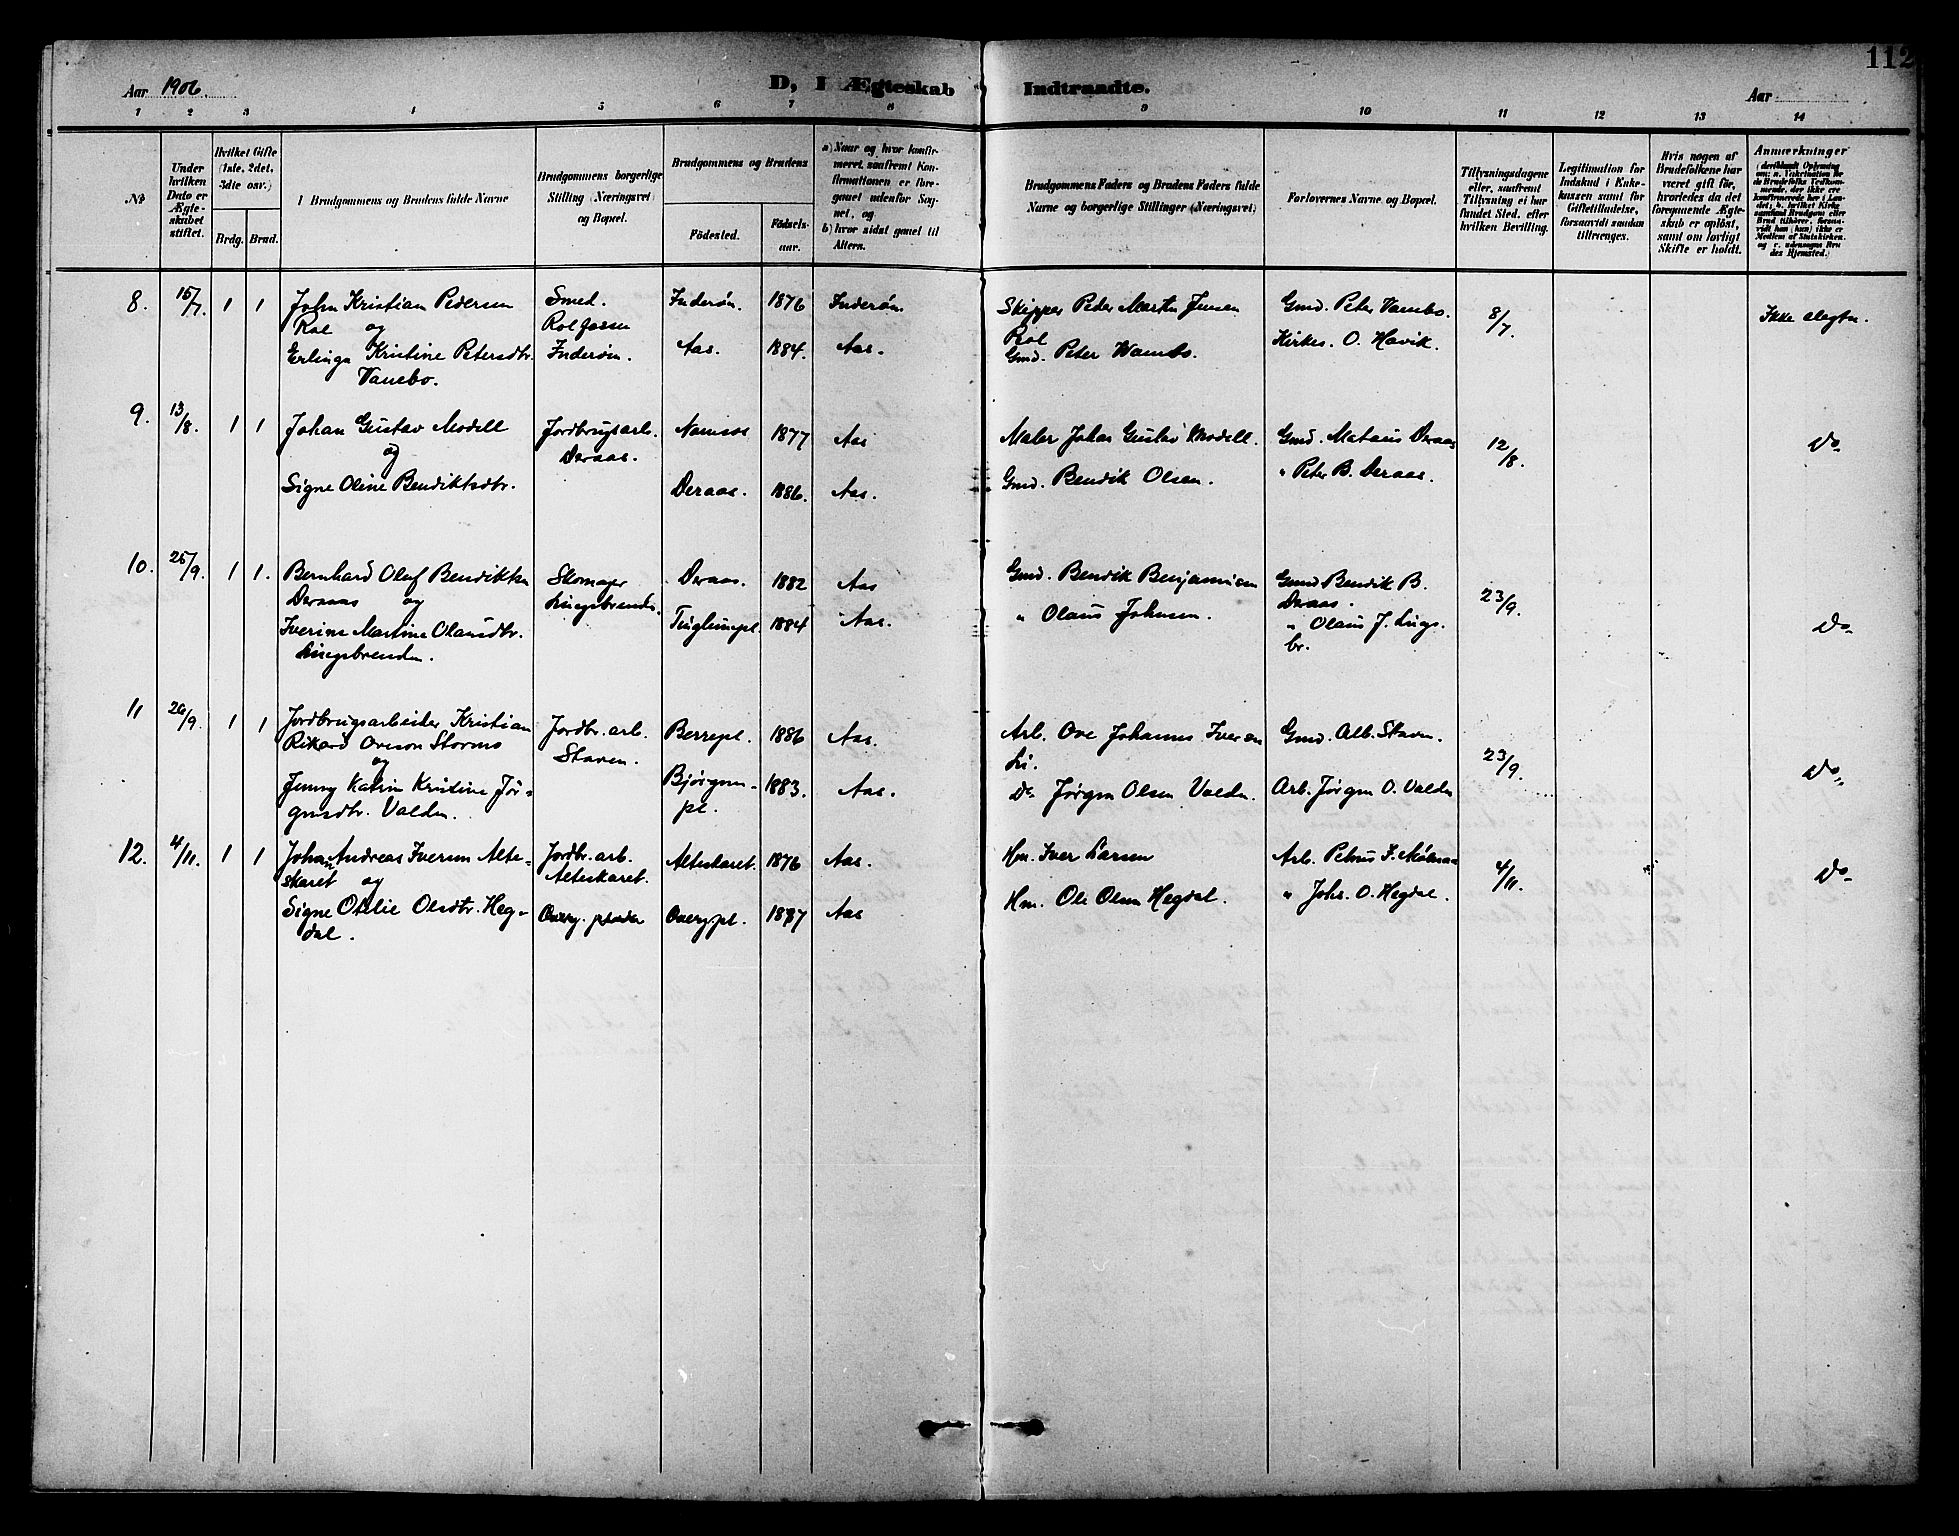 112
Aar 1906.
D, I Ægteskab Indtraadte.
Aar
1 2 3 4 5 6 7 8 9 10 11 12 13 14
№
Under hvilken Dato er Ægteskabet stiftet.
Hvilket Gifte (1ste, 2det, 3die osv.)
Brdg. Brud.
Brudgommens og Brudens fulde Navne
Brudgommens borgerlige Stilling (Næringsvei) og Bopæl.
Brudgommens og Brudens
Födested.
Födselsaar.
a) Naar og hvor konfirmeret, saafremt Konfirmationen er foregaaet udenfor Sognet, og
b) hvor sidst gaaet til Alters.
Brudgommens Faders og Brudens Faders fulde Navne og borgerlige Stillinger (Næringsvei)
Forlovernes Navne og Bopæl.
Tillysningsdagene eller, saafremt Tillysning ei har fundet Sted, efter hvilken Bevilling.
Legitimation for Indskud i Enkekassen samt for Giftetilladelse, forsaavidt saadan tiltrænges.
Hvis nogen af Brudefolkene har været gift för, hvorledes da det foregaaende Ægteskab er oplöst, samt om lovligt Skifte er holdt.
Anmærkninger
8. 15/7. 1 1 John Kristian Pedersen Smed. Inderøn. 1876 Inderøn. Skipper Peter Martin Jensen Gmd. Peter Vanebo. 8/7. Ikke slegtn.
Rol og
Erlinga Kristine Petersdtr. Inderøn. Aas. 1884. Aas. Gmd. Peter Wanebo. Kirkes. O. Havik.
Vanebo.
9. 13/8. 1 1 Johan Gustav Modell Jordbrugsarb. Namsos 1877 Aas Maler Johan Gustav Modell. Gmd. Mataus Deraas 12/8. Do
og Deraas.
Signe Oline Bendiktsdtr. Deraas. 1886. Aas. Gmd. Bendik Olsen. " Peter B. Deraas.
10. 25/9. 1 1. Bernhard Olaf Bendiktsn Skomager Deraas. 1882 Aas Gmd. Bendik Benjaminsen Gmd. Bendik B. 23/9.
Deraas og Deraas.
Iverine Martine Olausdtr. 1884 Aas. " Olaus Johnsen. " Olaus J. Do
br.
11 26/9. 1 1 Jordbrugsarbeider Kristian Jordbr. arb. Berrepl. 1886 Aas. Arb. Ove Johannes Iversen Gmd. Alb. Staven. 23/9.
Rikard Oveson Stormo Staven. Li.
og
Jenny Katrin Kristine Jör- Bjørgen- 1883. Aas. Do Jørgen Olsen Valden. Arb. Jørgen O. Valden Do
gensdtr. Valden. pl.
12. 4/11. 1 1 Johan Andreas Iversen Alte- Jordbr. arb. Alteskaret. 1876 Aas. Hm. Iver Larsen Arb. Petrus 4/11. Do
skaret og Alteskaret.
Signe Otelie Olsdtr. Heg- 1887 Aas Hm. Ole Olsen Hegdal. " Johs. O. Hegdal.
dal.